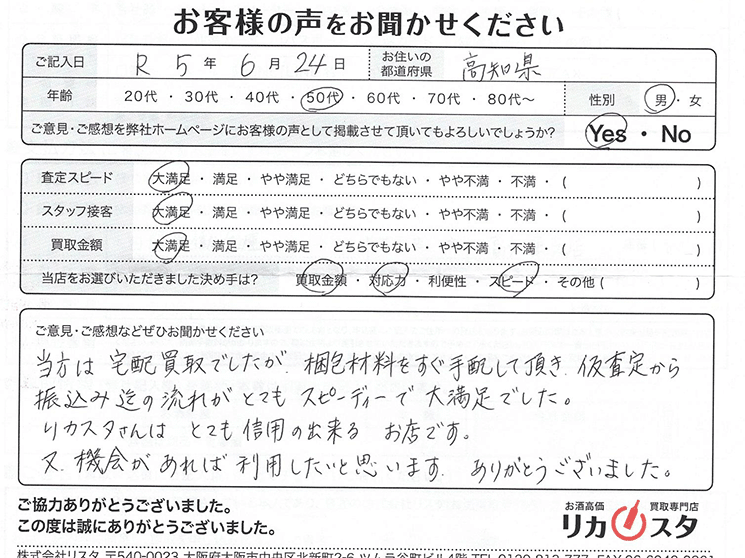 お客様の声をお聞かせください
ご記入日 R 5 年 6 月 24 日 お住いの都道府県 高知県
年齢 20代 ・ 30代 ・ 40代 ・ 50代 ・ 60代 ・ 70代 ・ 80代～ 性別 男 ・ 女
ご意見・ご感想を弊社ホームページにお客様の声として掲載させて頂いてもよろしいでしょうか? Yes ・ No
査定スピード 大満足 ・ 満足 ・ やや満足 ・ どちらでもない ・ やや不満 ・ 不満 ・ ( )
スタッフ接客 大満足 ・ 満足 ・ やや満足 ・ どちらでもない ・ やや不満 ・ 不満 ・ ( )
買取金額 大満足 ・ 満足 ・ やや満足 ・ どちらでもない ・ やや不満 ・ 不満 ・ ( )
当店をお選びいただきました決め手は? 買取金額 ・ 対応力 ・ 利便性 ・ スピード ・ その他 ( )
ご意見・ご感想などぜひお聞かせください
当方は 宅配買取でしたが、梱包材料をすぐ手配して頂き、仮査定から
振込み迄の流れが とても スピーディーで 大満足でした。
リカスタさんは とても 信用の出来る お店です。
又、機会があれば 利用したいと思います。 ありがとうございました。
ご協力ありがとうございました。
この度は誠にありがとうございました。
お酒高価 買取専門店
リカスタ
株式会社リスタ 〒540-0023 大阪府大阪市中央区北新町2-6